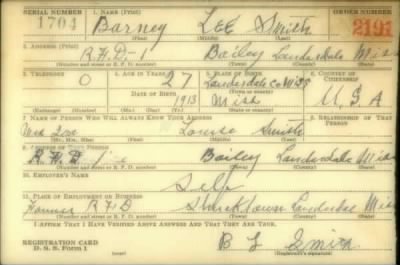 SERIAL NUMBER 1. NAME (Print) ORDER NUMBER
1704 Barney LEE Smith 2191
(First) (Middle) (Last)
2. ADDRESS (Print)
R.F.D-1 Bailey Lauderdale Miss
(Number and street or R. F. D. number) (Town) (County) (State)
3. TELEPHONE 4. AGE IN YEARS 5. PLACE OF BIRTH 6. COUNTRY OF CITIZENSHIP
0 27 Lauderdale Co Miss
DATE OF BIRTH (Town or county)
1913 Miss U S A
(Exchange) (Number) (Mo.) (Day) (Yr.) (State or country)
7. NAME OF PERSON WHO WILL ALWAYS KNOW YOUR ADDRESS 8. RELATIONSHIP OF THAT PERSON
Mrs Louise Smith
(Mr., Mrs., Miss) (First) (Middle) (Last)
9. ADDRESS OF THAT PERSON
R.F.D Bailey Lauderdale Miss
(Number and street or R. F. D. number) (Town) (County) (State)
10. EMPLOYER'S NAME
Self
11. PLACE OF EMPLOYMENT OR BUSINESS
RFD Lauderdale Miss
(Number and street or R. F. D. number) (Town) (County) (State)
I AFFIRM THAT I HAVE VERIFIED ABOVE ANSWERS AND THAT THEY ARE TRUE.
REGISTRATION CARD B L Smith
D. S. S. Form 1 (Registrant's signature)